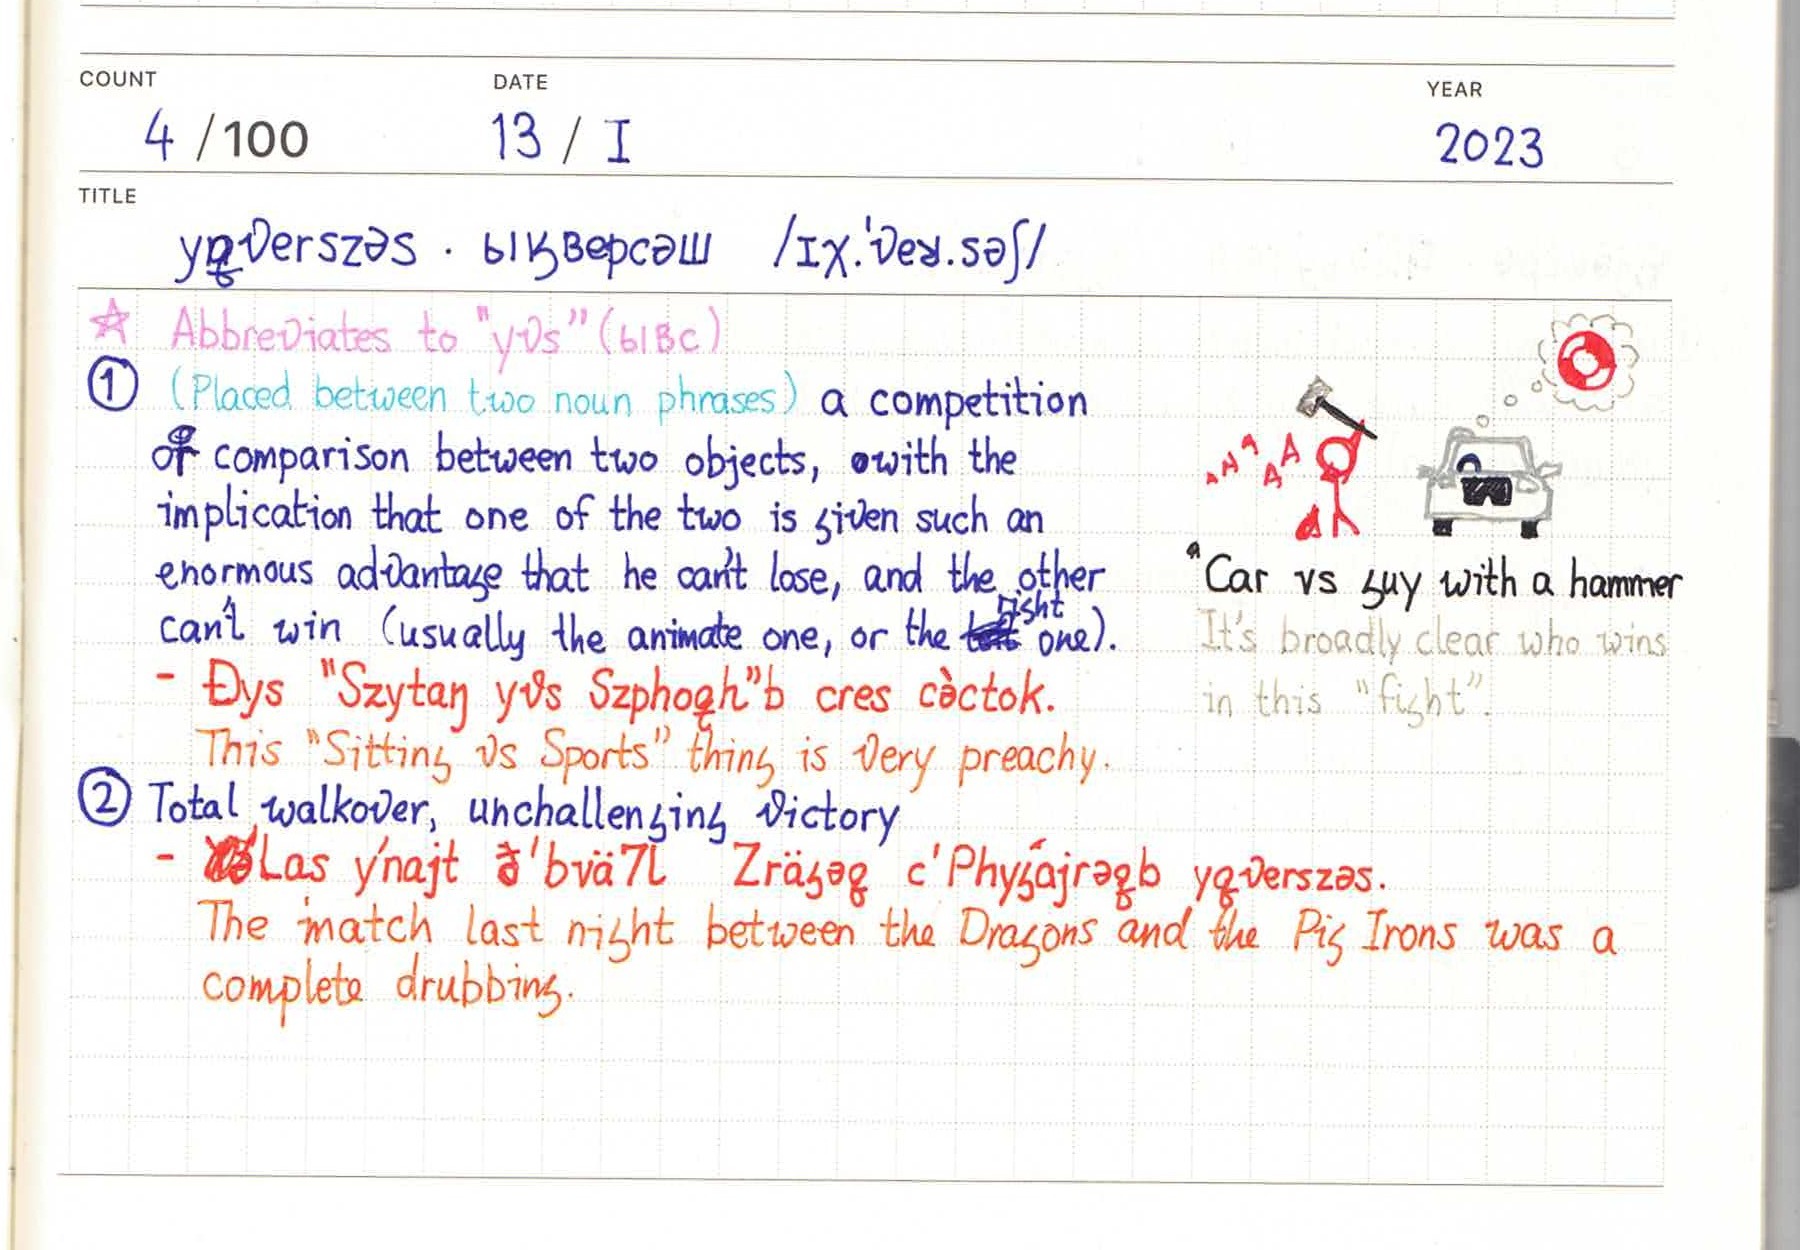 COUNT DATE YEAR
4 /100 13 / I 2023
TITLE
yꝗverszəs · ыӄвepcəш /ɪχ.ˈveʁ.səʃ/
☆ Abbreviates to "yvs" (ывc)
① (Placed between two noun phrases) a competition
of comparison between two objects, with the
implication that one of the two is given such an
enormous advantage that he can't lose, and the other
can't win (usually the animate one, or the right one).
- Đys "Szytaŋ yvs Szphoꝗh"b cres còctok.
This "Sitting vs Sports" thing is very preachy.
② Total walkover, unchallenging victory
- Las y'najt ð'bvä7l Zrägəꝗ c'Phygájrəꝗb yꝗverszəs.
The match last night between the Dragons and the Pig Irons was a
complete drubbing.
AAAAA
Car vs guy with a hammer
It's broadly clear who wins
in this "fight".